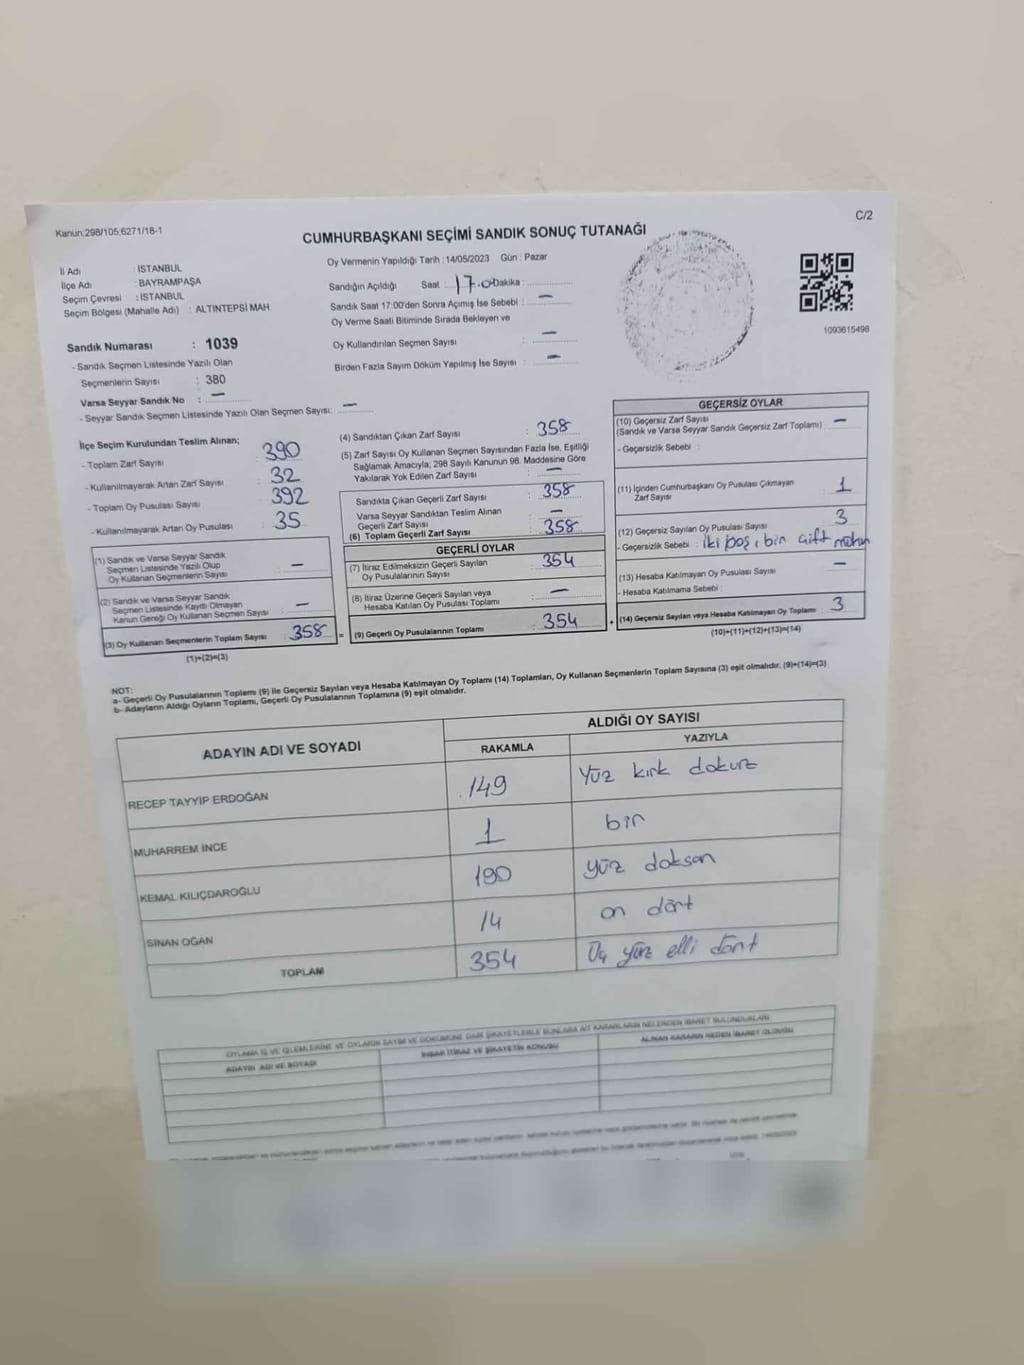 C/2
Kanun:298/105,6271/18-1
CUMHURBAŞKANI SEÇİMİ SANDIK SONUÇ TUTANAĞI
İl Adı : İSTANBUL
İlçe Adı : BAYRAMPAŞA
Seçim Çevresi : İSTANBUL
Seçim Bölgesi (Mahalle Adı) : ALTINTEPSİ MAH.
Sandık Numarası : 1039
- Sandık Seçmen Listesinde Yazılı Olan
Seçmenlerin Sayısı : 380
Varsa Seyyar Sandık No : —
- Seyyar Sandık Seçmen Listesinde Yazılı Olan Seçmen Sayısı: —
Oy Vermenin Yapıldığı Tarih : 14/05/2023 Gün : Pazar
Sandığın Açıldığı Saat : 17.0 Dakika :
Sandık Saat 17:00'den Sonra Açılmış İse Sebebi : —
Oy Verme Saati Bitiminde Sırada Bekleyen ve
Oy Kullandırılan Seçmen Sayısı : —
Birden Fazla Sayım Döküm Yapılmış İse Sayısı : —
1093615498
İlçe Seçim Kurulundan Teslim Alınan;
- Toplam Zarf Sayısı : 390
- Kullanılmayarak Artan Zarf Sayısı : 32
- Toplam Oy Pusulası Sayısı : 392
- Kullanılmayarak Artan Oy Pusulası : 35
(1) Sandık ve Varsa Seyyar Sandık
Seçmen Listesinde Yazılı Olup
Oy Kullanan Seçmenlerin Sayısı : —
(2) Sandık ve Varsa Seyyar Sandık
Seçmen Listesinde Kayıtlı Olmayan
Kanun Gereği Oy Kullanan Seçmen Sayısı : —
(3) Oy Kullanan Seçmenlerin Toplam Sayısı : 358 =
(1)+(2)=(3)
(4) Sandıktan Çıkan Zarf Sayısı : 358
(5) Zarf Sayısı Oy Kullanan Seçmen Sayısından Fazla İse, Eşitliği
Sağlamak Amacıyla; 298 Sayılı Kanunun 98. Maddesine Göre
Yakılarak Yok Edilen Zarf Sayısı : —
Sandıkta Çıkan Geçerli Zarf Sayısı : 358
Varsa Seyyar Sandıktan Teslim Alınan
Geçerli Zarf Sayısı : —
(6) Toplam Geçerli Zarf Sayısı : 358
GEÇERLİ OYLAR
(7) İtiraz Edilmeksizin Geçerli Sayılan
Oy Pusulalarının Sayısı : 354
(8) İtiraz Üzerine Geçerli Sayılan veya
Hesaba Katılan Oy Pusulası Toplamı : —
(9) Geçerli Oy Pusulalarının Toplamı : 354 +
GEÇERSİZ OYLAR
(10) Geçersiz Zarf Sayısı
(Sandık ve Varsa Seyyar Sandık Geçersiz Zarf Toplamı) : —
- Geçersizlik Sebebi :
(11) İçinden Cumhurbaşkanı Oy Pusulası Çıkmayan
Zarf Sayısı : 1
(12) Geçersiz Sayılan Oy Pusulası Sayısı : 3
- Geçersizlik Sebebi : iki boş, bir çift mühür
(13) Hesaba Katılmayan Oy Pusulası Sayısı : —
- Hesaba Katılmama Sebebi :
(14) Geçersiz Sayılan veya Hesaba Katılmayan Oy Toplamı : 3
(10)+(11)+(12)+(13)=(14)
NOT:
a- Geçerli Oy Pusulalarının Toplamı (9) ile Geçersiz Sayılan veya Hesaba Katılmayan Oy Toplamı (14) Toplamları, Oy Kullanan Seçmenlerin Toplam Sayısına (3) eşit olmalıdır. (9)+(14)=(3)
b- Adayların Aldığı Oyların Toplamı, Geçerli Oy Pusulalarının Toplamına (9) eşit olmalıdır.
ADAYIN ADI VE SOYADI
ALDIĞI OY SAYISI
RAKAMLA YAZIYLA
RECEP TAYYIP ERDOĞAN 149 Yüz kırk dokuz
MUHARREM İNCE 1 bir
KEMAL KILIÇDAROĞLU 190 yüz doksan
SİNAN OĞAN 14 on dört
TOPLAM 354 Üç yüz elli dört
OYLAMA İŞ VE İŞLEMLERİNE VE OYLARIN SAYIM VE DÖKÜMÜNE DAİR ŞİKAYETLERLE BUNLARA AİT KARARLARIN NELERDEN İBARET BULUNDUKLARI
ADAYIN ADI VE SOYADI
İHBAR İTİRAZ VE ŞİKAYETİN KONUSU
ALINAN KARARIN NEDEN İBARET OLDUĞU